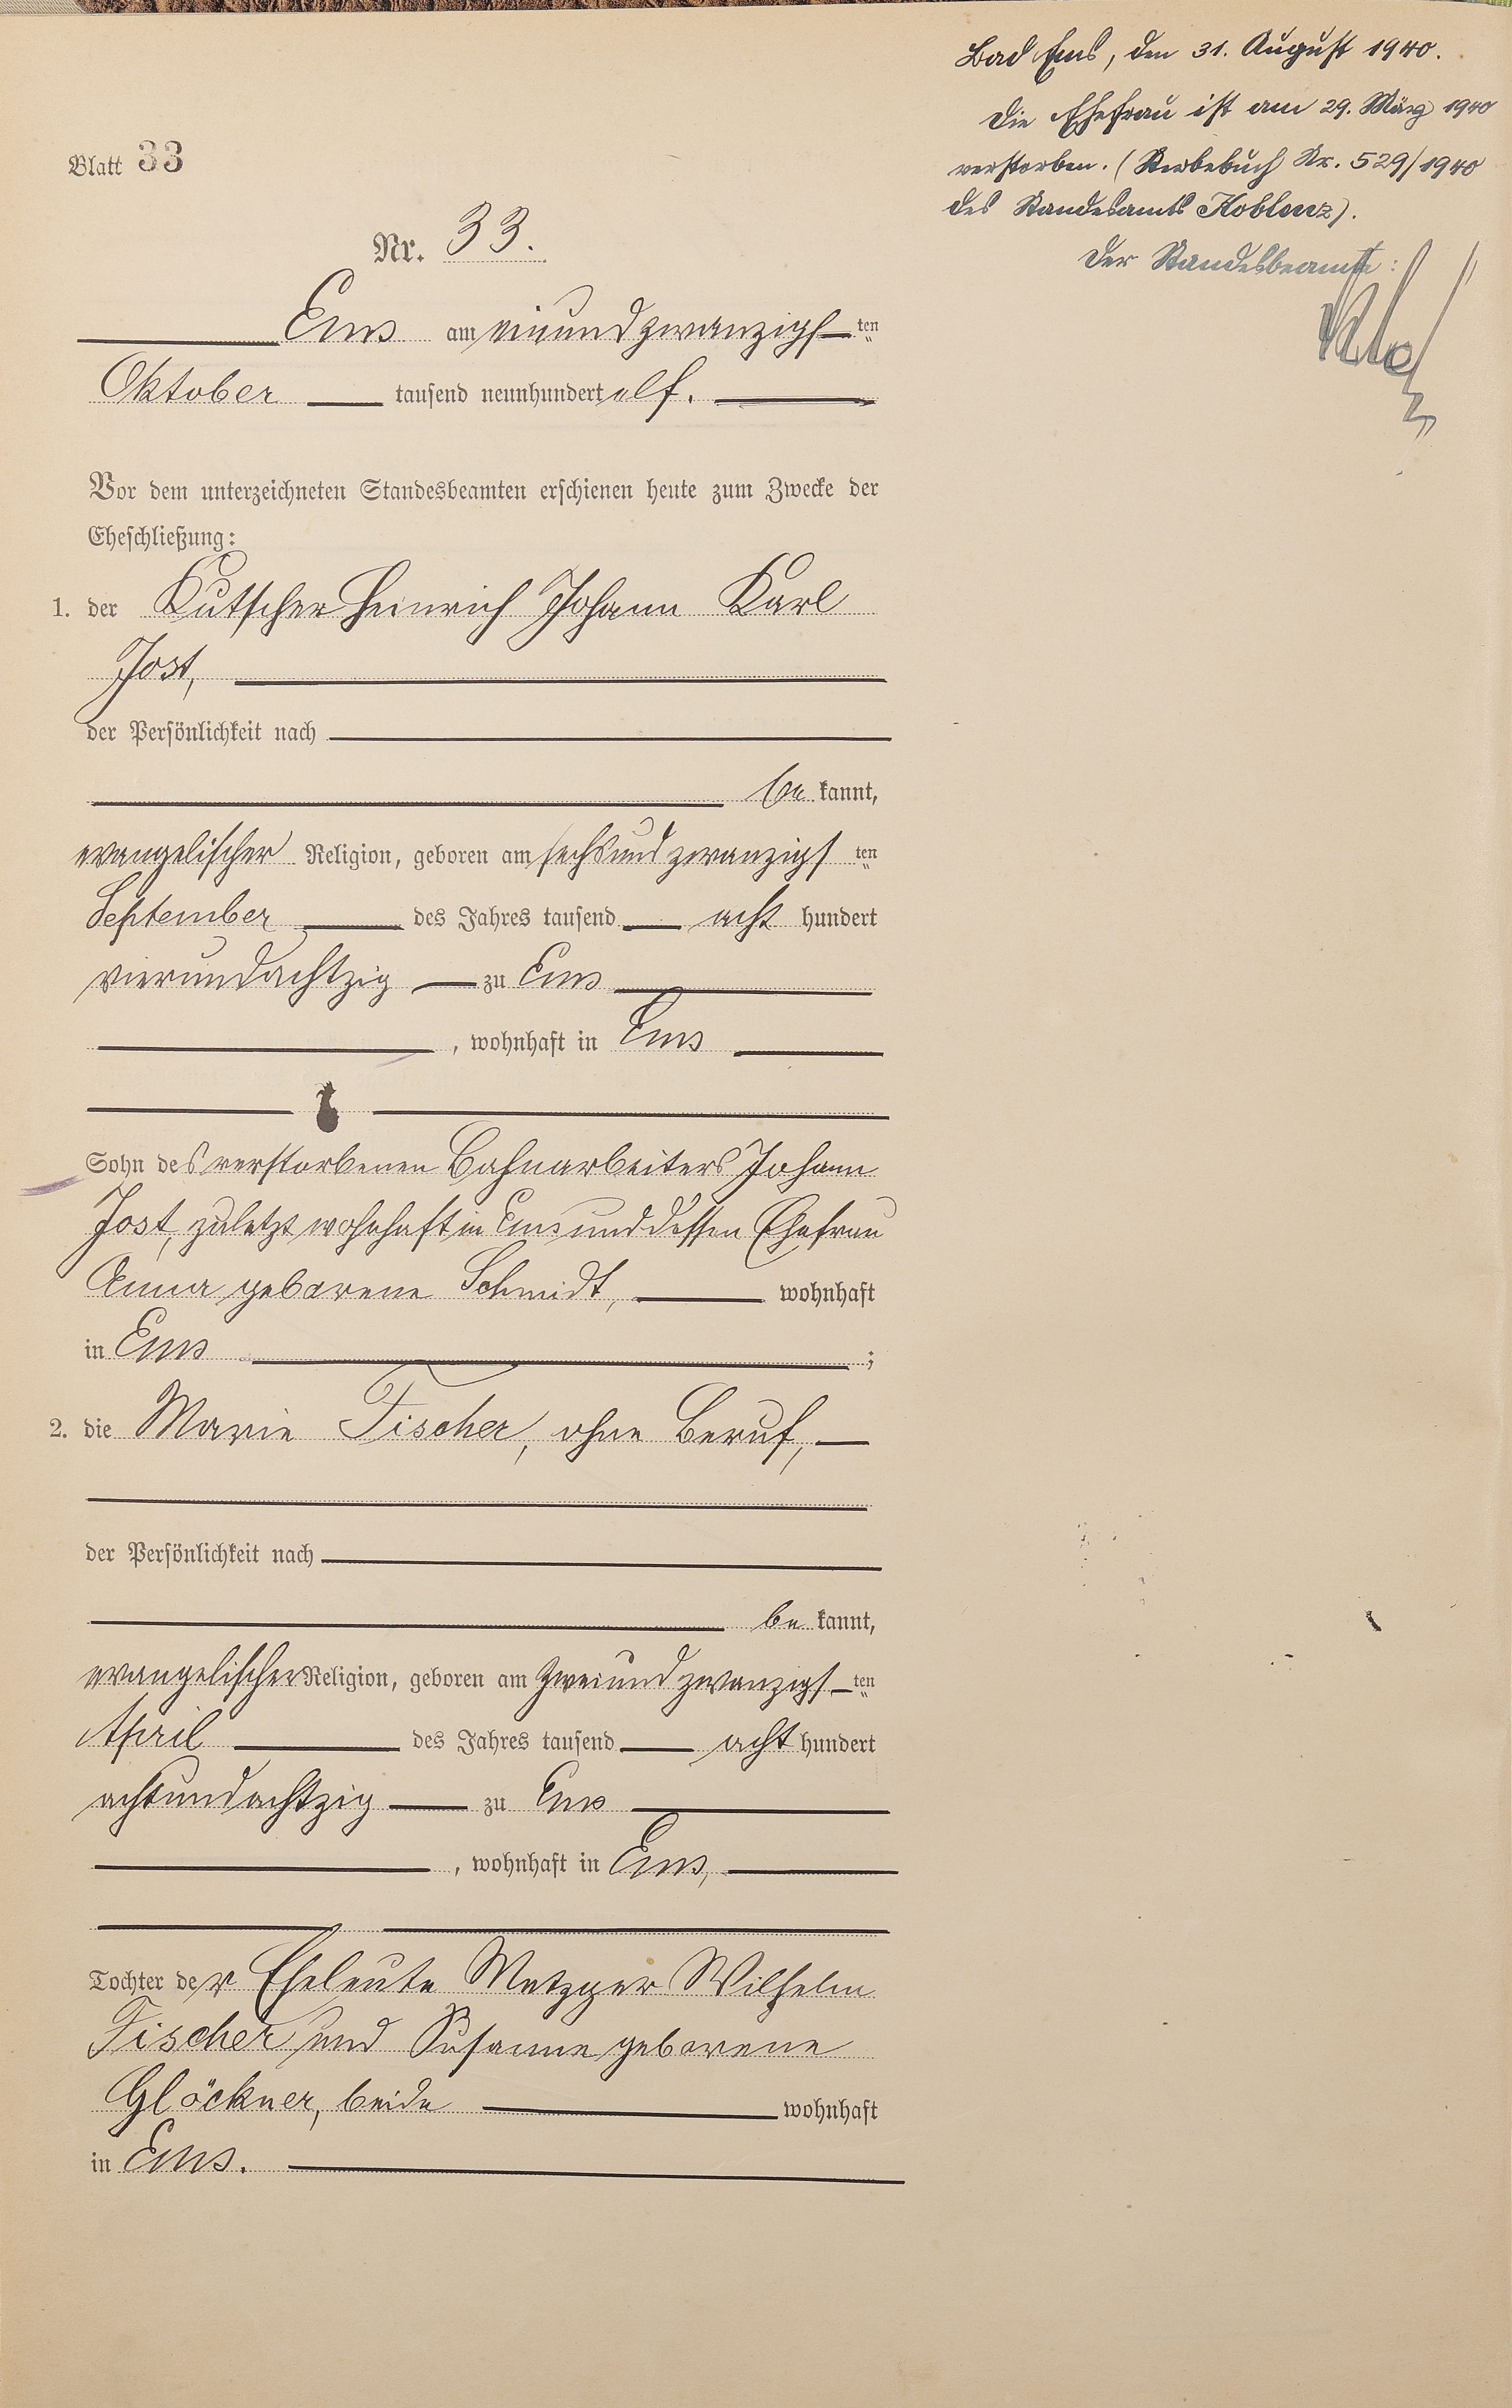 Blatt 33
Nr. 33.
Ems am einundzwanzigsten
Oktober tausend neunhundert elf.
Vor dem unterzeichneten Standesbeamten erschienen heute zum Zwecke der
Eheschließung:
1. der Kutscher Heinrich Johann Karl
Jost,
der Persönlichkeit nach
be kannt,
evangelischer Religion, geboren am sechsundzwanzigsten
September des Jahres tausend acht hundert
vierundachtzig zu Ems
, wohnhaft in Ems
Sohn des verstorbenen Bahnarbeiters Johann
Jost, zuletzt wohnhaft in Ems und dessen Ehefrau
Anna geborene Schmidt, wohnhaft
in Ems ;
2. die Marie Fischer, ohne Beruf,
der Persönlichkeit nach
be kannt,
evangelischer Religion, geboren am zweiundzwanzigsten
April des Jahres tausend acht hundert
achtundachtzig zu Ems
, wohnhaft in Ems,
Tochter der Eheleute Metzger Wilhelm
Fischer und Susanne geborene
Glöckner, beide wohnhaft
in Ems.
Bad Ems, den 31. August 1940.
Die Ehefrau ist am 29. März 1940
verstorben. (Sterbebuch Nr. 529/1940
des Standesamts Koblenz).
Der Standesbeamte: